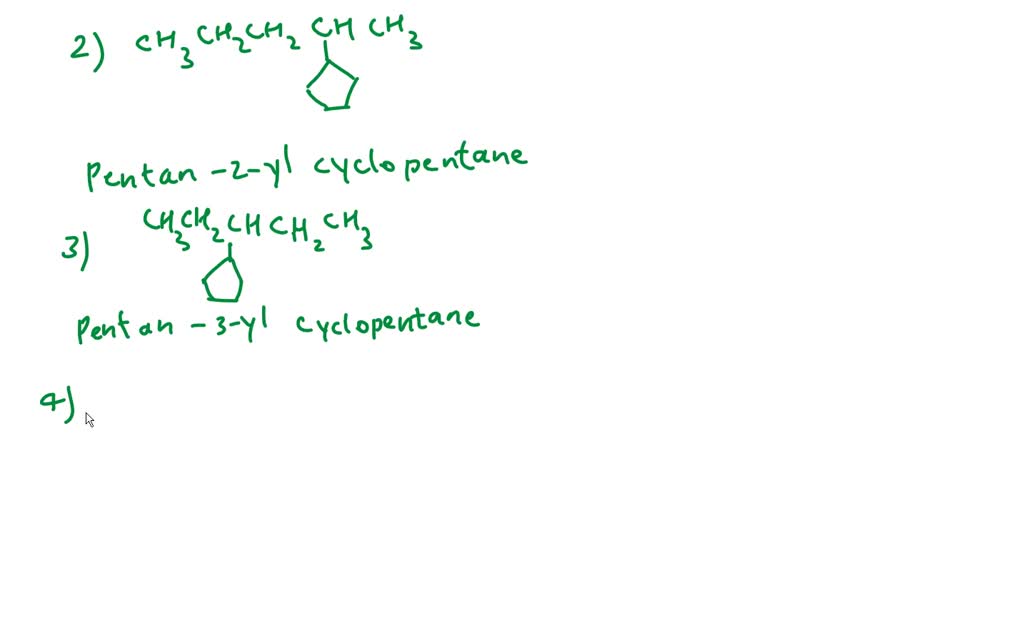 2) CH3CH2CH2 CH CH3
Pentan-2-yl cyclopentane
3) CH3CH2CHCH2CH3
Pentan-3-yl cyclopentane
4)